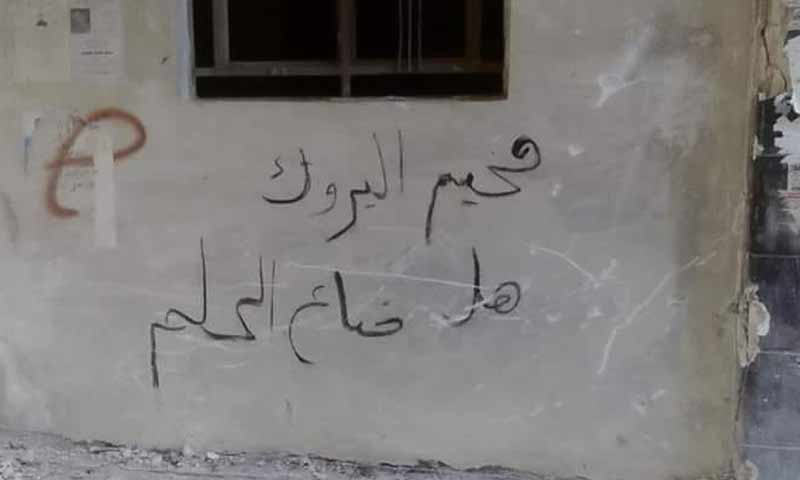 مخيم اليروك
هل ضائع الحلم